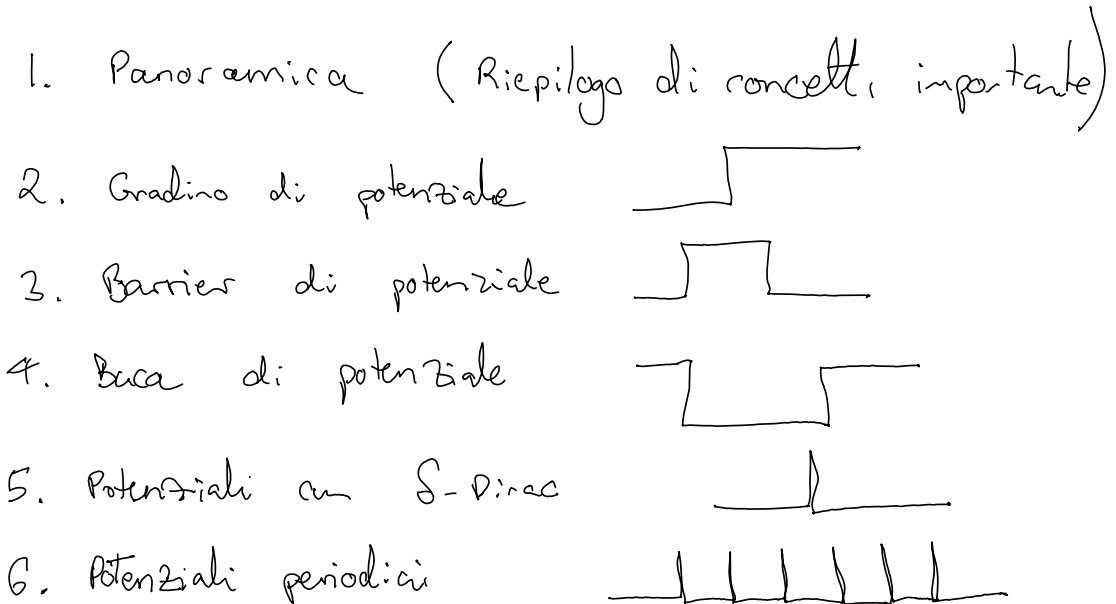 1. Panoramica (Riepilogo di concetti importante)
2. Gradino di potenziale
3. Barrier di potenziale
4. Buca di potenziale
5. Potenziali con δ-Dirac
6. Potenziali periodici